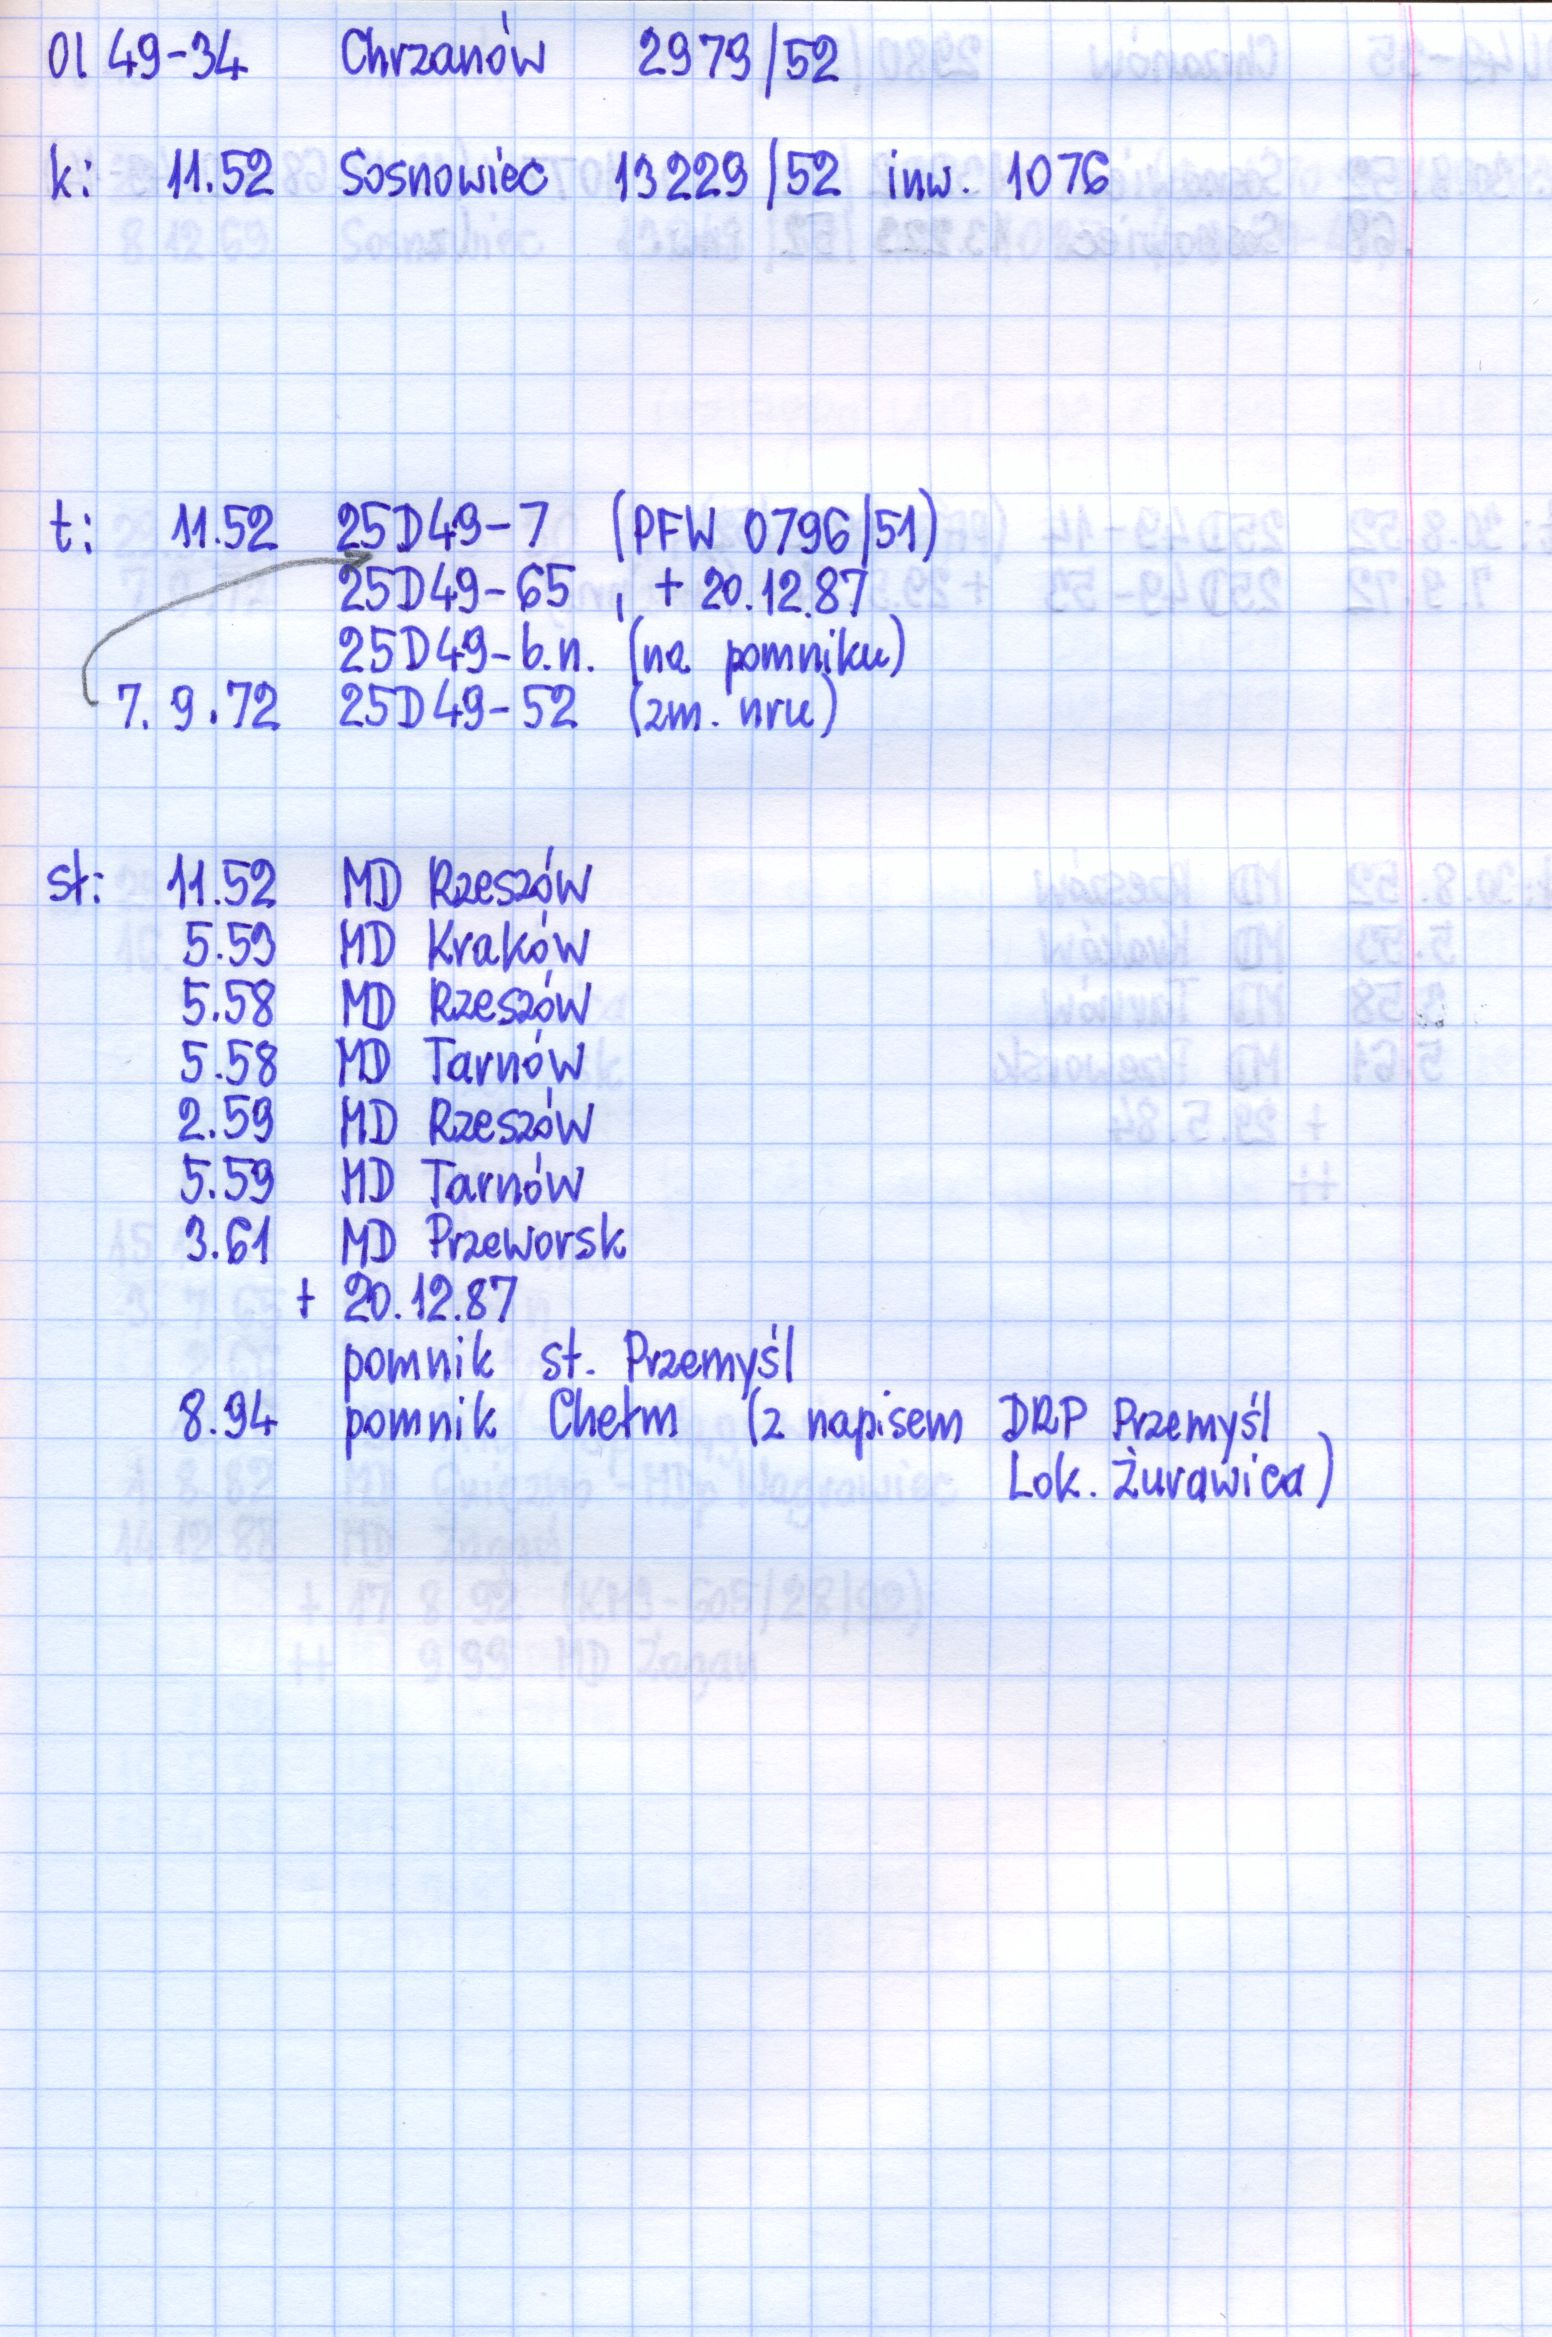 Ol 49-34 Chrzanów 2979/52
k: 11.52 Sosnowiec 13229/52 inw. 1076
t: 11.52 25D49-7 (PFW 0796/51)
25D49-65, + 20.12.87
25D49-b.n. (na pomniku)
7.9.72 25D49-52 (zm. nru)
st: 11.52 MD Rzeszów
5.53 MD Kraków
5.58 MD Rzeszów
5.58 MD Tarnów
2.59 MD Rzeszów
5.59 MD Tarnów
3.61 MD Przeworsk
+ 20.12.87
pomnik st. Przemyśl
8.94 pomnik Chełm (z napisem DRP Przemyśl
Lok. Żurawica)